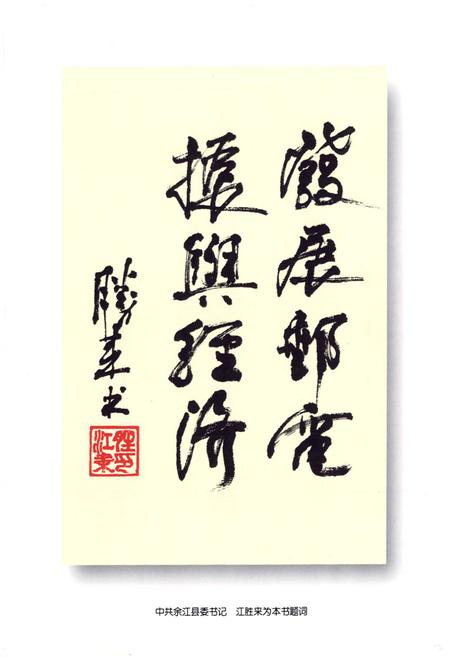 發展郵電
振興經濟
勝来书
中共余江县委书记　江胜来为本书题词